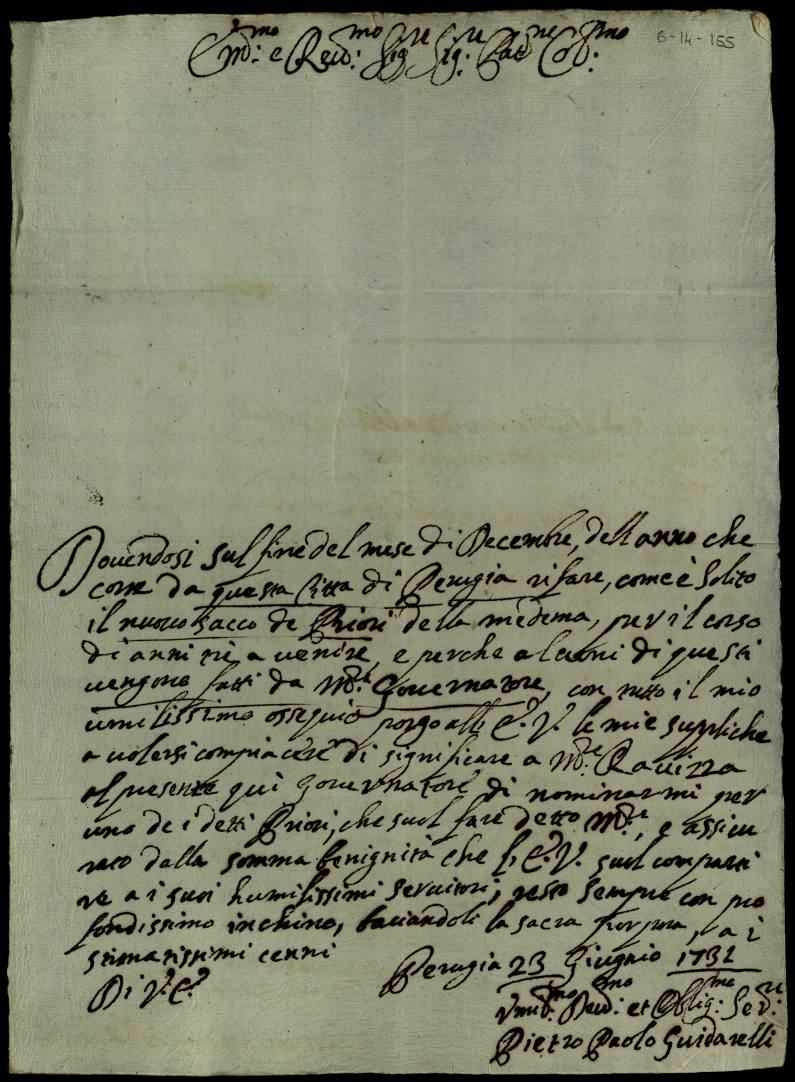 Em:mo e Reud:mo Sig:re Sig:re Pat:ne Col:mo
6-14-155
Douendosi sul fine del mese di Decembre, dell anno che
corre da questa Città di Perugia rifare, come è solito
il nuouo sacco de Priori della medema, per il corso
di anni trè a uenire, e perche alcuni di questi
uengono fatti da M:re Gouernatore, con tutto il mio
umilissimo ossequio porgo all' E. V. le mie suppliche
a uolersi compiacere di significare a M:re Rauizza
al presente qui Gouernatore di nominarmi per
uno de i detti Priori, che suol fare detto M:re, e assicu
rato dalla somma benignità che l' E. V. suol comparti
re a i suoi humilissimi seruitori, resto sempre con pro
fondissimo inchino, baciandoli la sacra Purpora, a i
stimatissimi cenni
Di V. E.
Perugia 23 Giugno 1731
Vmil:mo Deu:mo et Oblig:mo Se:re
Pietro Paolo Guidarelli